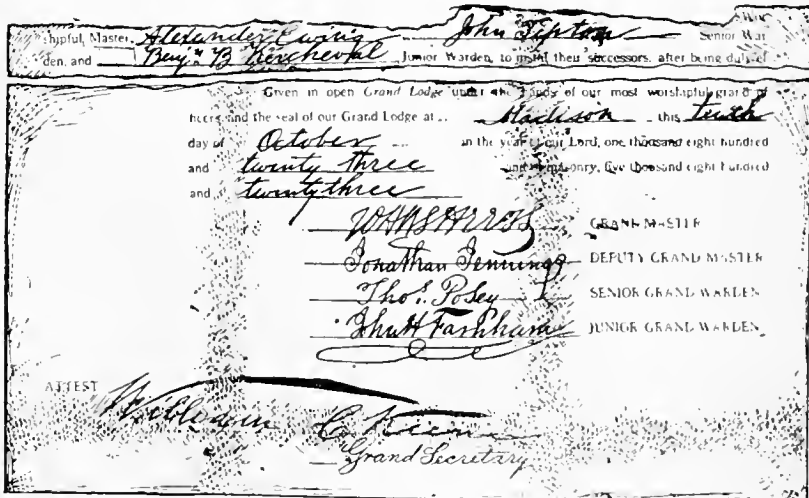 shipful, Master, Alexander Ewing John Tipton Senior War
den, and Benjn B Kercheval Junior Warden, to install their successors, after being duly
Given in open Grand Lodge under the hands of our most worshipful grand of
ficers and the seal of our Grand Lodge at Madison this tenth
day of October in the year of our Lord, one thousand eight hundred
and twenty three and of Masonry, five thousand eight hundred
and twenty three
GRAND MASTER
Jonathan Jennings DEPUTY GRAND MASTER
Thos. Posey SENIOR GRAND WARDEN
John H Farnham JUNIOR GRAND WARDEN
ATTEST
William C Keen
Grand Secretary